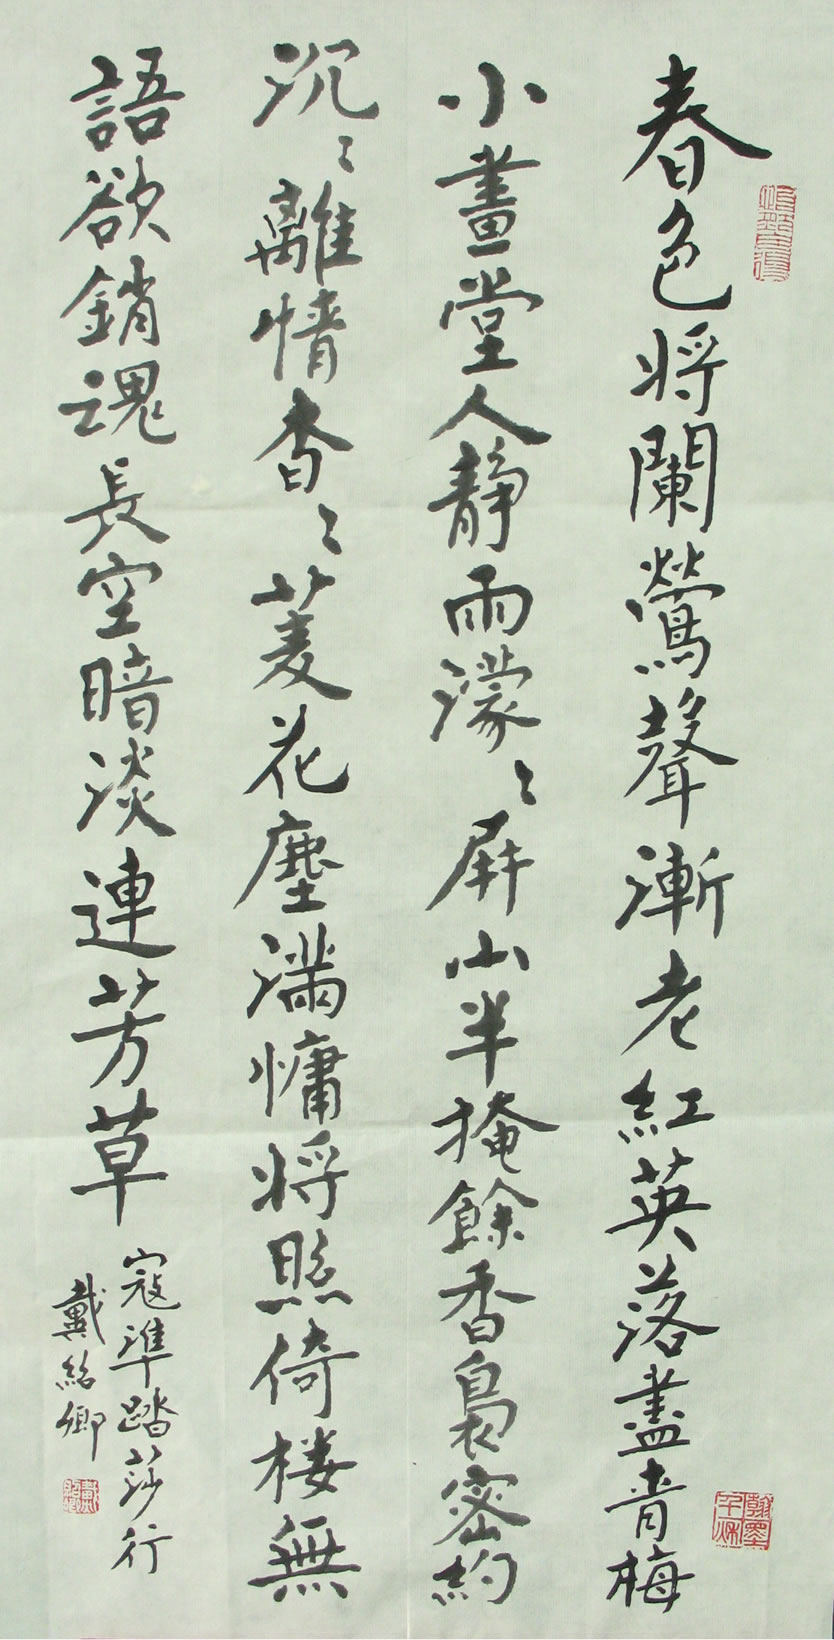 春色将闌鶯聲漸老紅英落盡青梅
小畫堂人靜雨濛〻屏山半掩餘香裊密約
沉〻離情杳〻菱花塵滿慵将照倚楼無
語欲銷魂長空暗淡連芳草
寇準踏莎行
戴紹卿
翰墨千秋